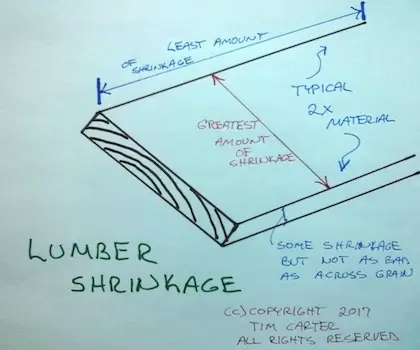 LEAST AMOUNT
OF SHRINKAGE
TYPICAL
2X
MATERIAL
GREATEST
AMOUNT
OF
SHRINKAGE
SOME SHRINKAGE
BUT NOT AS BAD
AS ACROSS GRAIN
LUMBER
SHRINKAGE
(C) COPYRIGHT 2017
TIM CARTER
ALL RIGHTS RESERVED